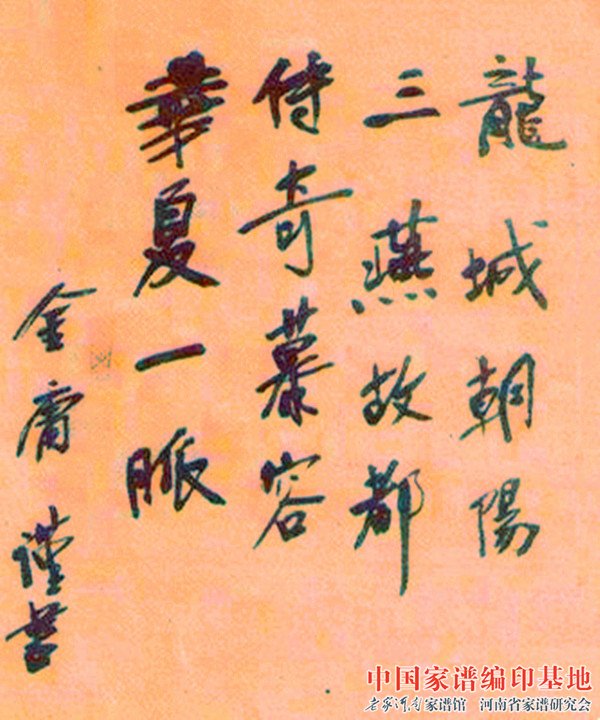 龍城朝陽
三燕故都
傳奇慕容
華夏一脈
金庸 謹書
中国家谱编印基地
老家河南家谱馆 河南省家谱研究会